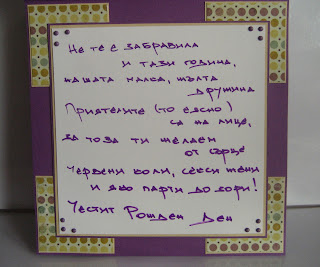 Не те е забравила
и тази година,
нашата малка, жълта
дружина
Приятелите (то ясно)
са на лице,
за това ти желаем
от сърце
червени коли, секси жени
и яко парти до зори!
Честит Рожден Ден